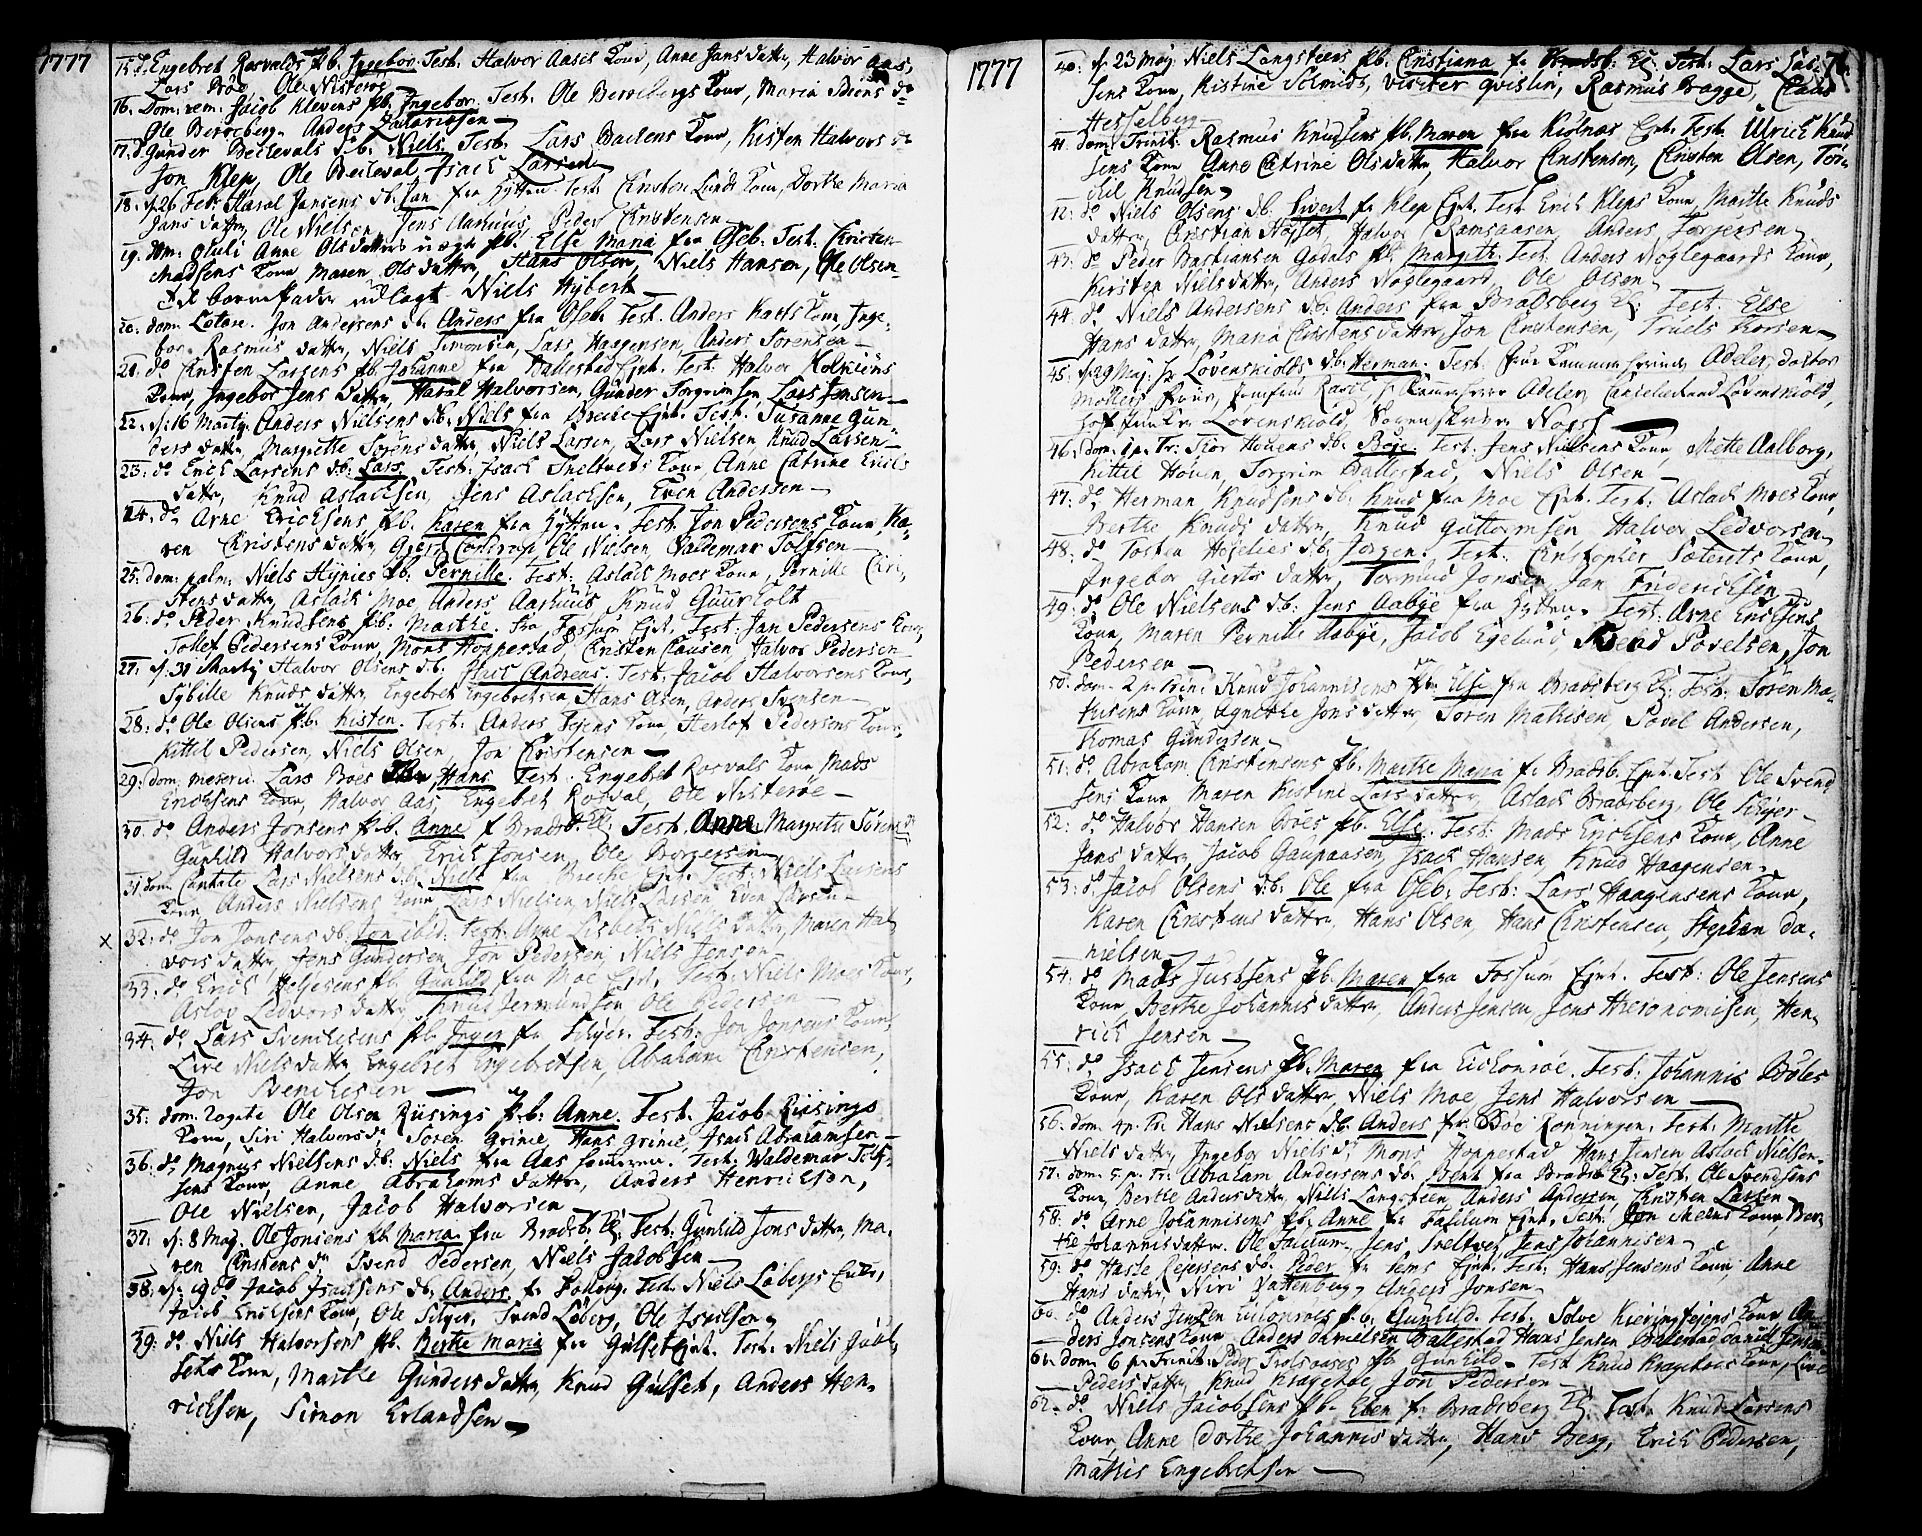 1777
15. d. Engebret Rosvalds pb. Ingebor Test. Halvor Aases Kone, Anne Jans datter, Halvor Aas,
Lars Ole Nisterøe
16. Dom: rem: Jacob Klevens pb. Ingebor. Test. Ole Berrebergs Kone, Maria d.
Ole Berreberg. Anders Zachariesen
17. d. Gunder Beilevals d.b. Niels Test. Lars Baches Kone, Kisten Halvors d.
Jon Klep, Ole Beileval, Isach Larsen
18. d. 26 Feb: Harol Jansens d.b. Jan fra Hytten. Test. Christen Lunds Kone, Dorthe Maria
Jans datter, Ole Nielsen, Jens Aarhuus, Peder Christensen
19. dom: Oculi Anne Olsdatters uægte pb. Else Maria fra Oseb. Test. Christen
Madsens Kone, Maren Olsdatter Hans Olsen, Niels Hansen, Ole Olsen
til barnefader udlagt Niels Hybert
20. dom. Lætare. Jon Andersens d.b. Anders fra Oseb. Test. Anders Kaas Kone, Inge-
bor Rasmus datter, Niels Simonsen, Lars Haagensen, Anders Sørensen
21. do Christen Larsens pb. Johanne fra Ballestad Ejet. Test. Halvor Kolkiins
Kone, Ingebor Jens datter, Harol Halvorsen, Gunder Torgrimsen Lars Jensen
22. d. 16 Martij Anders Nielsens d.b. Niels fra Brecke Ejet. Test. Susanne Gun-
ders datter Margrette Sørens datter, Niels Larsen, Lars Nielsen, Knud Larsen
23. do Erich Larsens d.b. Lars. Test. Isach Sneltvets Kone, Anne Catrine Erichs
datter, Knud Aslachsen, Jens Aslachsen, Even Andersen
24. do Arne Erichsens pb. Karen fra Hytten. Test. Jon Pedersens Kone, Ka-
ren Christens datter Ole Nielsen, Valdemar Tolfsen
25. dom: palm: Niels Hynies pb. Pernille. Test. Aslach Moes Kone, Pernille Chri-
stens datter Aslach Moe Anders Aarhuus Knud Guurholt
26. do Peder Knudsens pb. Marthe. fra Fossum Ejet. Test. Jan Pedersens Kone,
Tollef Pedersens Kone, Mons Hoppestad, Christen Clausen, Halvor Pedersen
27. d. 31 Martij Halvor Olsens d.b. Andreas. Test. Jacob Halvorsens Kone,
Sybille Knuds datter Engebret Engebretsen, Hans Olsen, Anders Svensen
28. do Ole Olsens pb. Kisten. Test. Anders Kone, Herlof Pedersens Kone,
Kittel Pedersen, Niels Olsen, Jon Christensen
29. dom: meseric. Lars Boes Hans Test. Engebret Rosvals Kone Mads
Erichsens Kone, Halvor Aas, Engebret Rosval, Ole Nisterøe
30. do Anders Jonsens pb. Anne f. Bradsb. Test. Anne Margrete Sørens d.
Gunhild Halvors datter, Erich Jonsen, Ole Borgersen
31. dom Cantate Lars Nielsens d.b. Niels fra Brecke Ejet. Test. Niels Larsens
Kone, Anders Nielsens Kone, Lars Nielsen, Niels Larsen, Even Larsen
x
32. do Jon Jonsens d.b. Jon ibid. Test. Anne Lisbeth Niels datter, Maren Hal-
vors datter, Jens Gundersen, Jon Pedersen, Niels Jensen
33. do Erich Helgesens pb. Gunhild fra Moe Ejet. Test. Niels Moes Kone,
Aslov Ledvors datter, Knud Jermundsen Ole Pedersen
34. do Lars Svenchesens pb. Inger fr. Silger. Test. Jon Jonsens Kone,
Live Niels datter, Engebret Engebretsen, Abraham Christensen,
Jon Svenchesen
35. dom: rogate Ole Olsen Riisings pb. Anne. Test. Jacob Riisings
Kone, Siri Halvors d. Søren Grinie, Hans Grinie, Isach Abrahamsen
36. do Magnus Nielsens d.b. Niels fra Aas Test. Waldemar Tolf-
sens Kone, Anne Abrahams datter, Anders Henrichson,
Ole Nielsen, Jacob Halvorsen
37. d. 8 Maj. Ole Jonsens pb. Maria fra Bradsb. Test. Gunhild Jons datter, Ma-
ren Christens d. Svend Pedersen, Niels Jacobsen
38. d. 19 do Jacob Isachsens d.b. Anders f. Test. Niels Løbergs Enke,
Jacob Erichsens Kone, Ole Silger, Svend Løberg, Ole Isachsen
39. do Niels Halvorsens pb. Berthe Maria fra Gulset Ejet. Test. Niels Gul-
sets Kone, Marthe Gunders datter, Knud Gulset, Anders Hen-
richsen, Simon Erlandsen
1777
40. d. 23 Maj. Niels Langsteens pb. Cristiana fr. Bradsb. Test. Lars Lar-
sens Kone, Kistine Schmids, visiter Qvislin, Rasmus Bagge, Claus
Hesselberg
41. dom: Trinit: Rasmus Knudsens pb. Maren fra Kiølnæs Ejet. Test. Ulrich Knud-
sens Kone Anne Catrine Olsdatter, Halvor Christensen, Christen Olsen, Tor-
chil Knudsen
42. do Niels Olsens d.b. Sivert fr. Klep Ejet. Test. Erich Kleps Kone, Marthe Knuds
datter, Christian Halvor Ramsaasen, Anders Torgersen
43. do Peder Bastiansen Godals pb. Margith. Test. Anders Noglegaards Kone,
Kirsten Nielsdatter, Anders Noglegaard, Ole Olsen
44. do Niels Andersens d.b. Anders fra Bradsberg Test. Else
Hans datter, Maria Christens datter, Jon Christensen, Truels Korsen
45. d. 29 Maj: Hr Løvenskiolds d.b. Herman. Test. Frue Kammerherinde Adeler, doctor
Møllers Frue, Jomfrue Rasch, Hr Kammerherre Adeler, Løvenskiold,
Løvenskiold,
46. dom: 1 p. Tr: Thor Hovens d.b. Boje. Test. Jens Nielsens Kone, Mette Aalborg,
Kittel Hoven, Torgrim Ballestad, Niels Olsen
47. do Herman Knudsens d.b. Knud fra Moe Ejet. Test. Aslach Moes Kone,
Berthe Knuds datter, Knud Guttormsen, Halvor Ledvorsen
48. do Tosten d.b. Jørgen. Test. Christopher Kone,
Ingebor Gierts datter, Tormod Jonsen, Jan Friderichsen
49. do Ole Nielsens d.b. Jens Aabye fra Hytten. Test. Arne Erichsens
Kone, Maren Pernille Aabye, Jacob Egelund, Svend Povelsen, Jon
Pedersen
50. dom. 2 p. trin: Knud Johannesens pb. Else fra Bradsberg Test. Søren Ma-
thisens Kone Agnethe Jons datter, Søren Mathisen, Povel Andersen,
Thomas Gundersen
51. do Abraham Christensens pb. Marthe Maria fr. Bradsb. Ejet. Test. Ole Svend-
sens Kone, Maren Kistine Lars datter, Aslach Bradsberg, Ole Silger
52. do Halvor Hansen Bøes pb. Else. Test. Mads Erichsens Kone, Anne
Jans datter, Jacob Gaupaasen, Isach Hansen, Knud Haagensen
53. do Jacob Olsens d.b. Ole fra Oseb. Test. Lars Haagensens Kone,
Karen Christens datter, Hans Olsen, Hans Christensen, Stephen Da-
nielsen
54. do Mads Justsens pb. Maren fra Fossum Ejet. Test. Ole Jensens
Kone, Berthe Johannis datter, Anders Jensen, Jens Hieronomisen, Hen-
rich Jensen
55. do Isach Jensens pb. Maren fra Eichonrøe. Test. Johannis Bøles
Kone, Karen Olsdatter, Niels Moe, Jens Halvorsen
56. dom. 4 p. Tr. Hans Nielsens d.b. Anders fr. Bøe Ronningen. Test. Marthe
Niels datter, Ingebor Niels d. Mons Hoppestad Hans Jensen Aslach Nielsen
57. dom. 5. p. Tr. Abraham Andersens d.b. Bent fra Bradsb. Test. Ole Svendsens
Kone, Berthe Anders datter, Niels Langsteen, Anders Andersen, Christen Larsen
58. do Arne Johannisens pb. Anne fr. Ejet. Test. Jon Kone, Ber-
the Johannis datter. Ole Jens Sneltvet, Jens Johannisen
59. do Hasle Rejersens d.b. Peder fr. Ejet. Test. Hans Jensens Kone, Anne
Hans datter, Anders Jonsen
60. do Anders Jensen Eichonrøes pb. Gunhild. Test. Solve Kieringtejens Kone, An-
ders Jonsens Kone, Anders Danielsen Ballestad Hans Jensen Ballestad Daniel Jensen
61. dom 6 p. Trinit. Peder pb. Gunhild. Test. Knud Kragehoes Kone, Live
Peders datter, Knud Kragehoe, Jon Pedersen
62. do Niels Jacobsens pb. Elen f. Bradsberg Test. Knud Larsens
Kone, Anne Dorthe Johannis datter, Hans Berg, Erich Pedersen,
Mathis Engebretsen